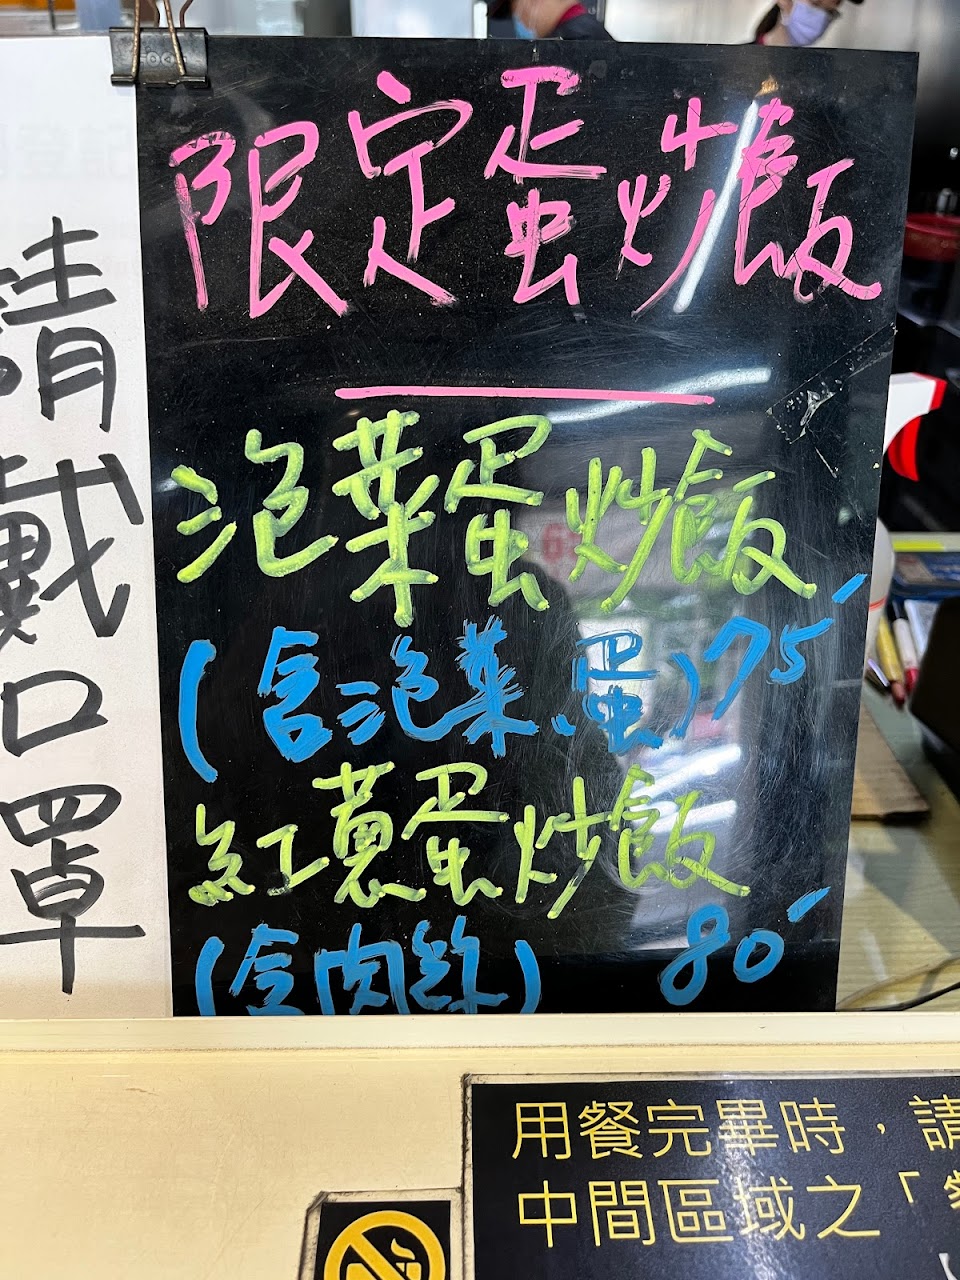 限定蛋炒飯
泡菜蛋炒飯
(含泡菜、蛋) 75
紅蔥蛋炒飯
(含肉絲) 80
請戴口罩
用餐完畢時，請
中間區域之「